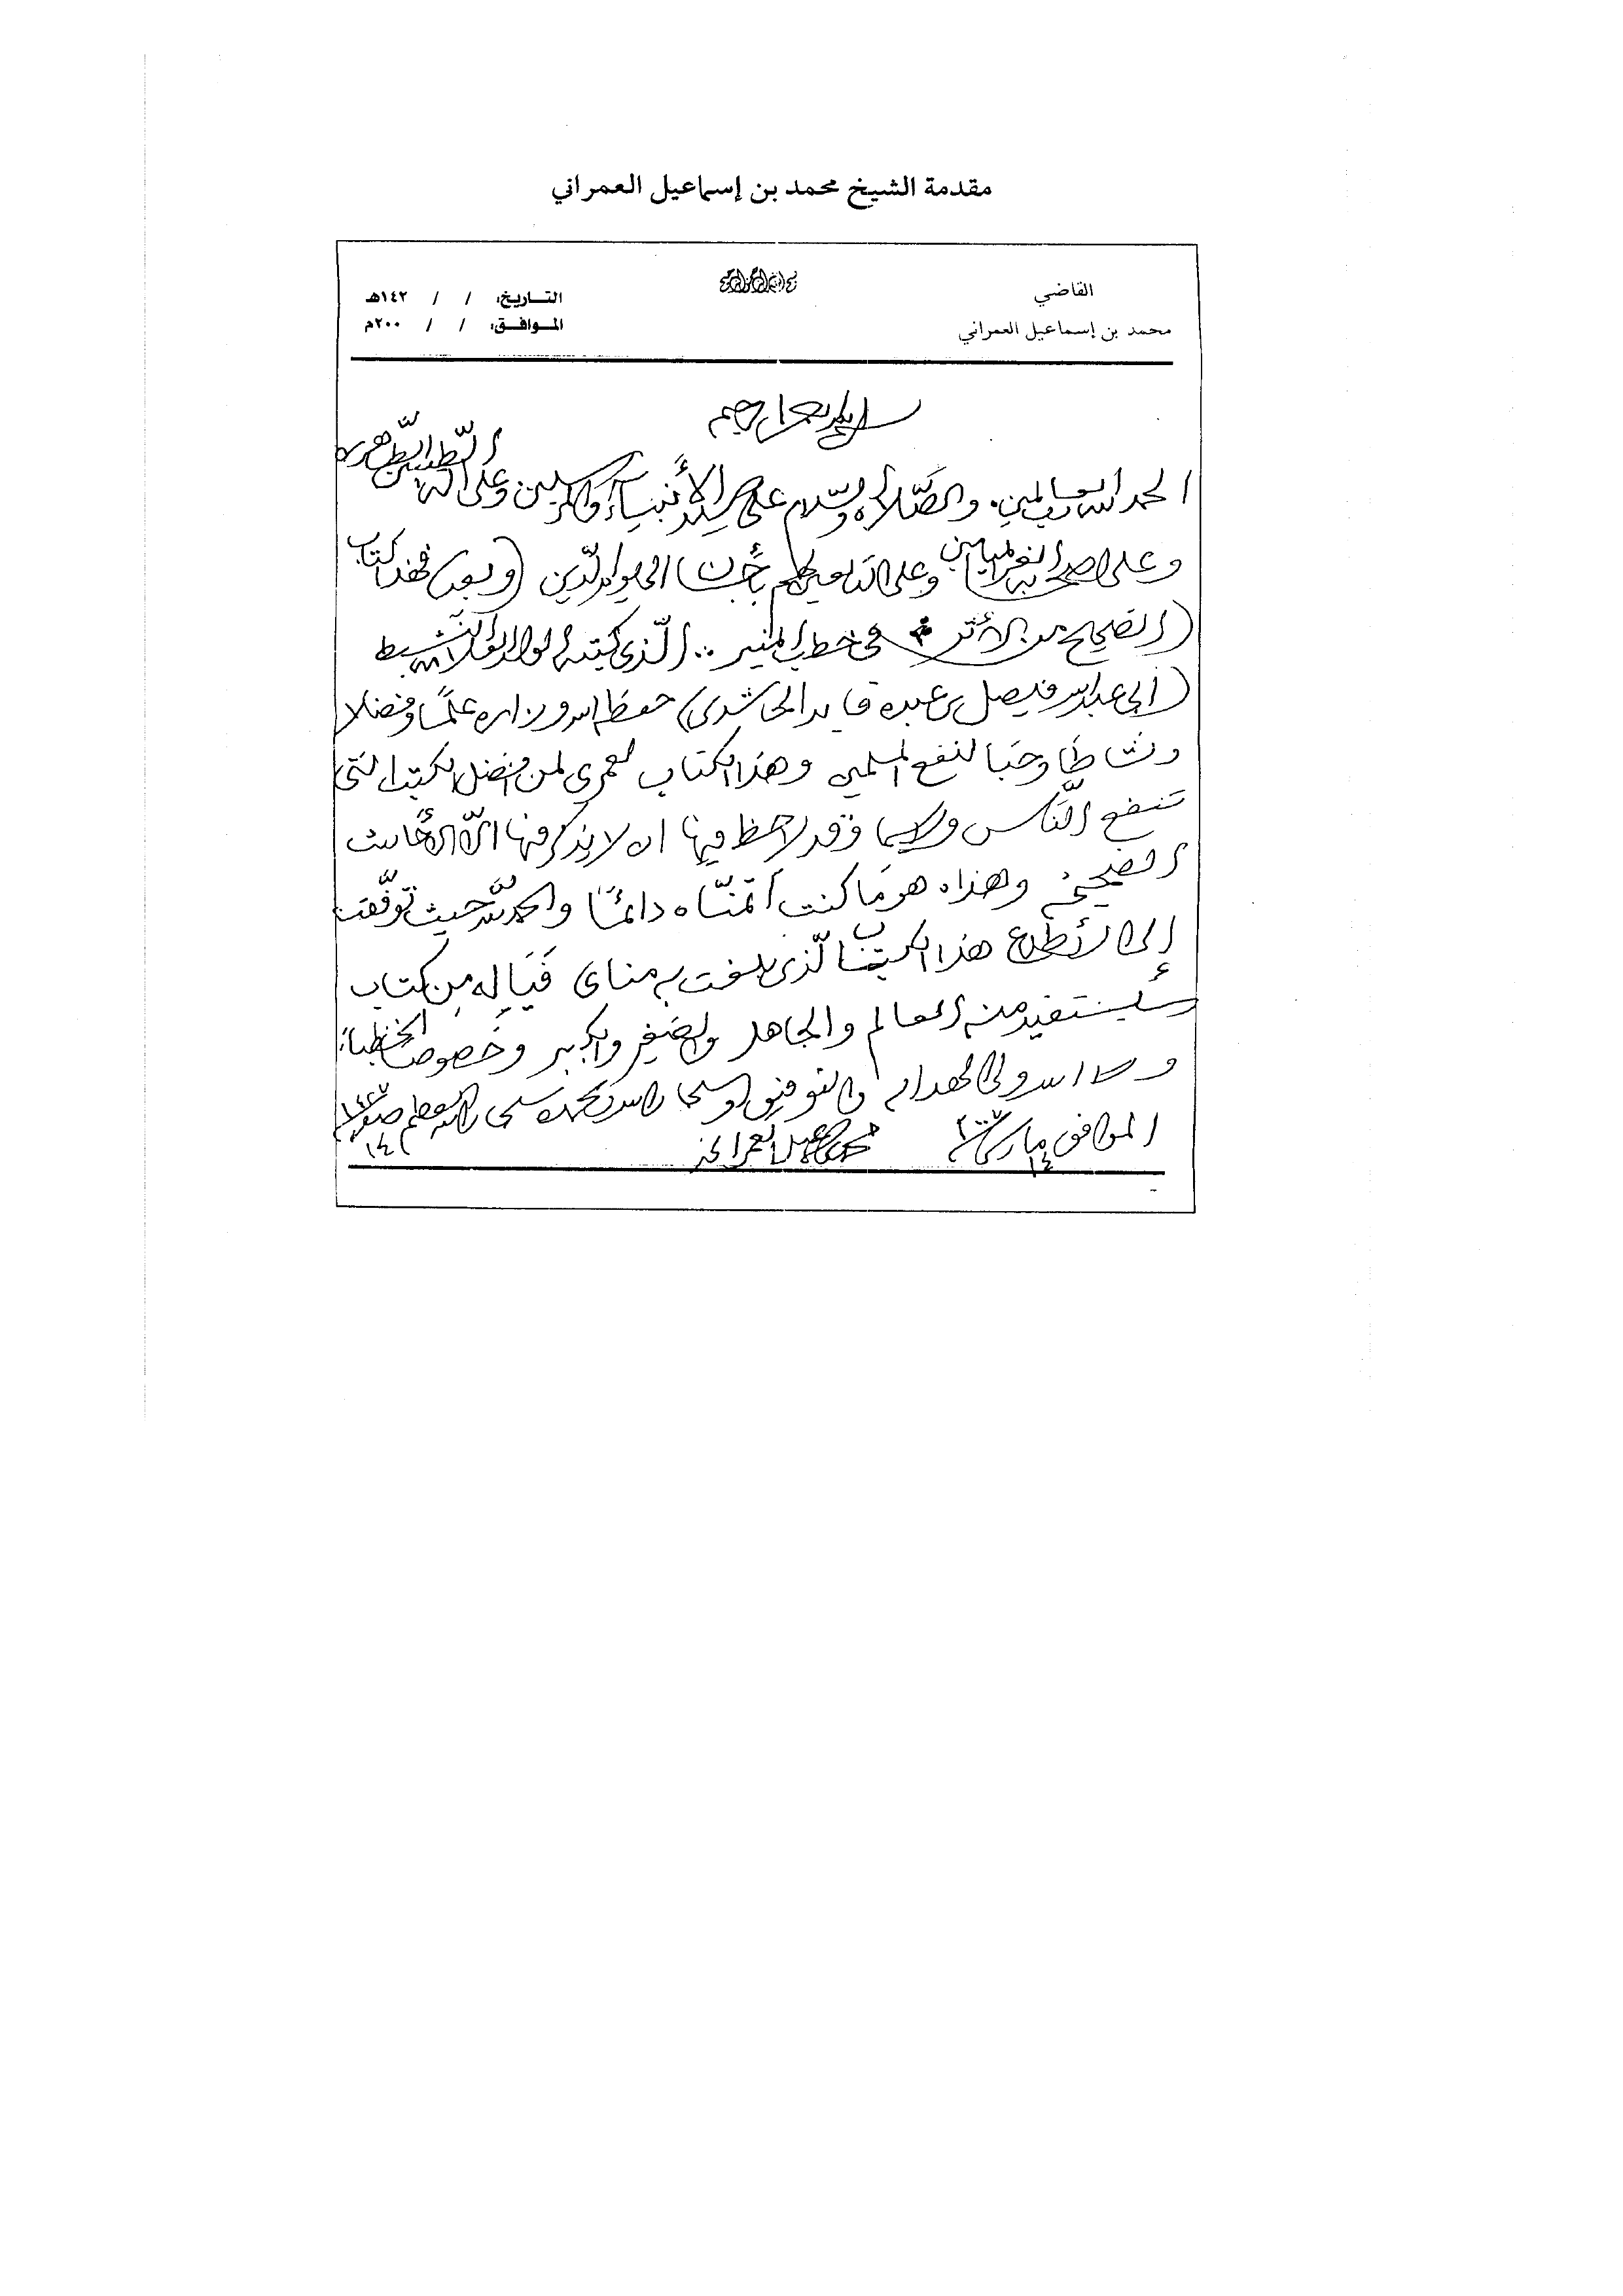 مقدمة الشيخ محمد بن إسماعيل العمراني
القاضي
محمد بن إسماعيل العمراني
التاريخ: / / ١٤٢هـ
الموافق: / / ٢٠٠م
بسم الله الرحمن الرحيم
الحمد لله رب العالمين. والصَّلاة والسّلام على سيد الأنبياء والمرسلين وعلى آله الطّيبين الطّاهرين
وعلى صحابته الغر الميامين وعلى التابعين لهم بإحسان الى يوم الدّين (وبعد) فهذا كتاب
(الصحيح من الأثر في خطب المنبر .. الّذي كتبه الولد العلامة النّشيط
(أبي عبدالله فيصل بن عبده قايد الحاشدي) حفظه الله وزاده علمًا وفضلا
ونشاطًا وحبا لنفع المسلمين وهذا الكتاب لعمري لمن افضل الكتب التي
تنفع النّاس ولاسيما وقد لاحظ فيها ان لا يذكر فيها الّا الأحاديث
الصحيحة وهذا هو ما كنت أتمنّاه دائمًا والحمد لله حيث توفّقت
إلى الأطلاع هذا الكتاب الّذي بلغت به مناى فَيَاله من كتاب
سيستفيد منه العالم والجاهل والصغير والكبير وخصوصا الخطباء
والله ولي الهداية والتوفيق وسبحان الله وبحمده سبحان الله العظيم صفر
الموافق مارس ٢٠٠٧
محمد بن اسماعيل العمراني